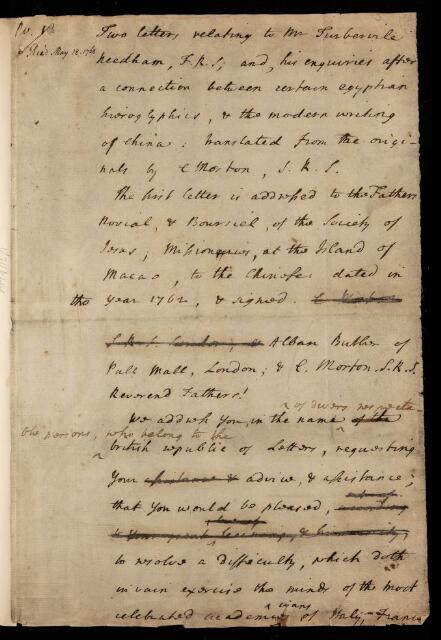 Read May 18. 1768
Two letters relating to Mr Turbervile
Needham, F.R.S; and, his enquiries after
a connection between certain egyptian
hieroglyphics, & the modern writing
of China: translated from the origi-
nals by C Morton, S.R.S.
The first letter is addressed to the Fathers
Rovial, & Boursiel, of the Society of
Jesus; Missionaries, at the Island of
Macao, to the Chinese: dated in
the year 1762, & signed. C Morton
S.R.S. London, & Alban Butler of
Pall Mall, London; & C. Morton. S.R.S.
Reverend Fathers!
of divers respecta-
We address You, in the name of the
ble persons, who belong to the
british republic of Letters, requesting
Your assistance & advice, & assistance;
that You would be pleased, according
to Your great learning, & humanity,
to resolve a difficulty, which doth
in vain exercise the minds of the most
celebrated academicians of Italy, France